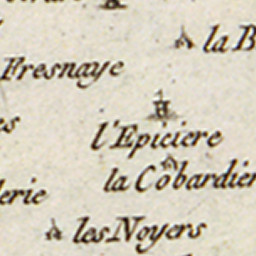 la B
Fresnaye
es
l'Epiciere
la Cobardier
lerie
les Noyers